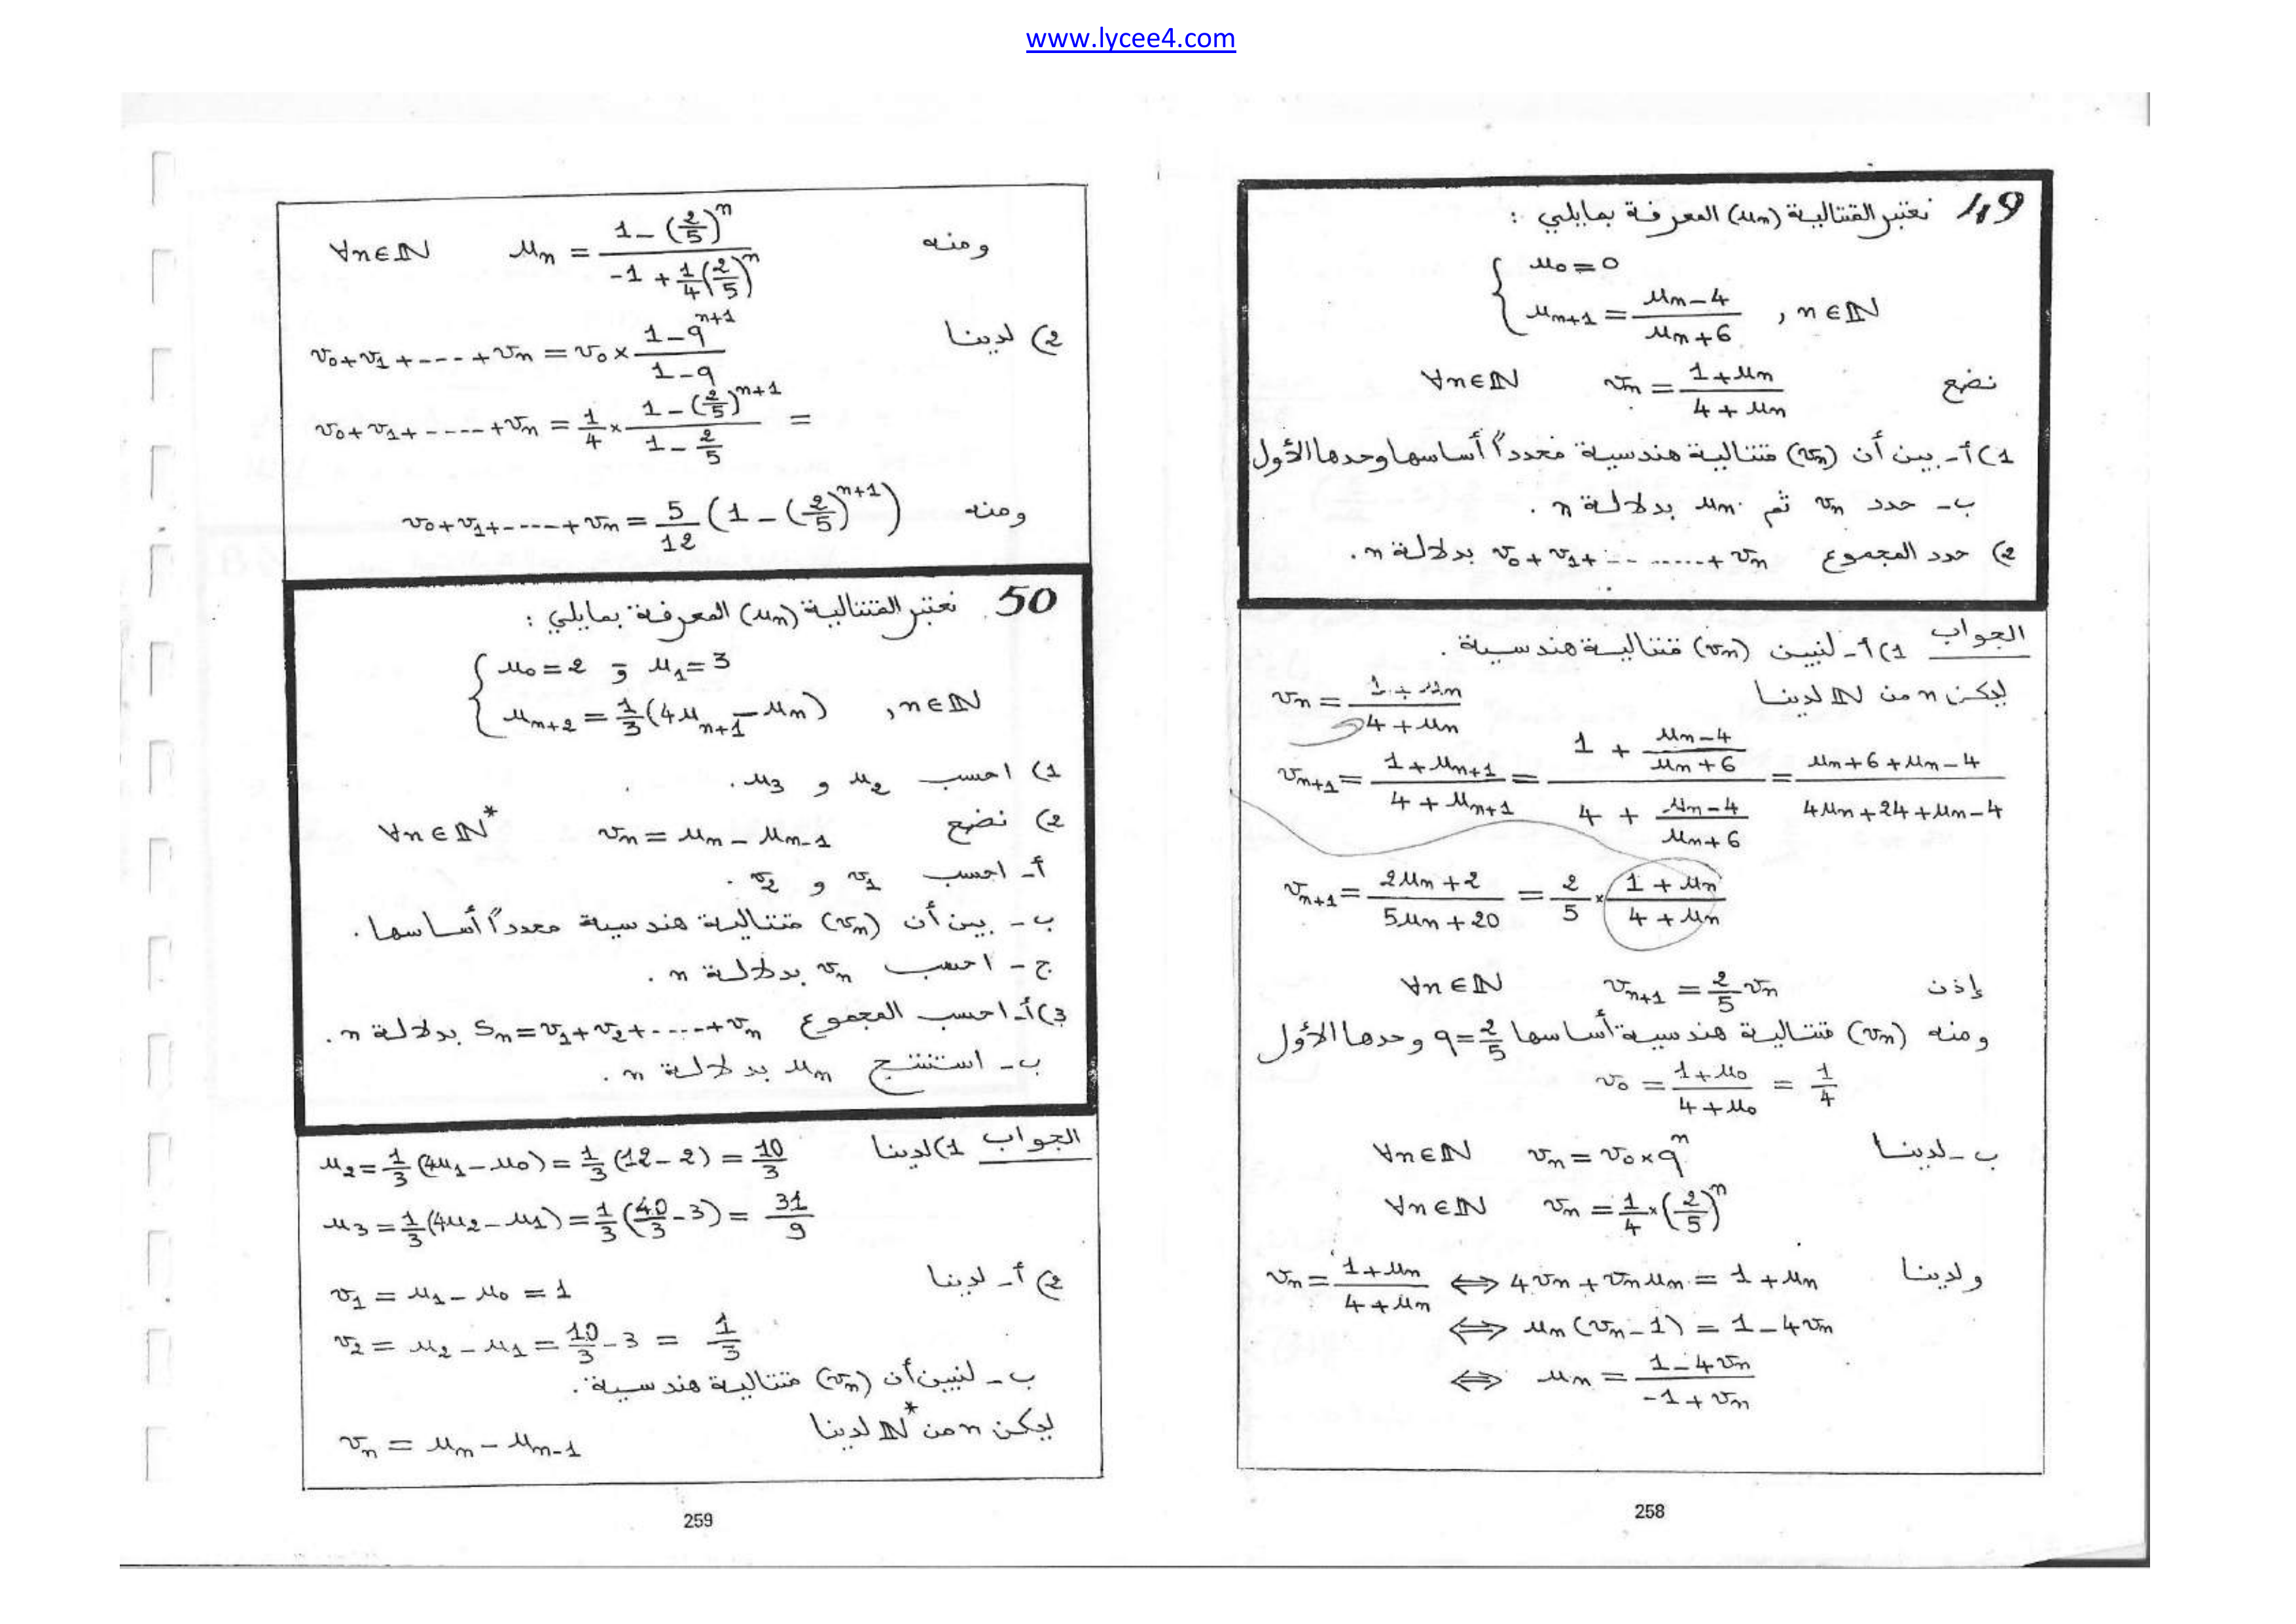 www.lycee4.com
49 نعتبر المتتالية (un) المعرفة بمايلي :
{ u0 = 0
un+1 = (un - 4)/(un + 6) , n ∈ ℕ
نضع vn = (1 + un)/(4 + un) ∀n∈ℕ
1) أ- بين أن (vn) متتالية هندسية محدداً أساسها وحدها الأول
ب- حدد vn ثم un بدلالة n .
2) حدد المجموع v0 + v1 + ........ + vn بدلالة n .
الجواب 1) أ- لنبين (vn) متتالية هندسية .
ليكن n من ℕ لدينا vn = (1 + un)/(4 + un)
vn+1 = (1 + un+1)/(4 + un+1) = (1 + (un - 4)/(un + 6))/(4 + (un - 4)/(un + 6)) = (un + 6 + un - 4)/(4un + 24 + un - 4)
vn+1 = (2un + 2)/(5un + 20) = 2/5 × (1 + un)/(4 + un)
إذن vn+1 = 2/5 vn ∀n∈ℕ
ومنه (vn) متتالية هندسية أساسها q = 2/5 وحدها الأول
v0 = (1 + u0)/(4 + u0) = 1/4
ب- لدينا vn = v0 × q^n ∀n∈ℕ
vn = 1/4 × (2/5)^n ∀n∈ℕ
ولدينا vn = (1 + un)/(4 + un) ⟺ 4vn + vn un = 1 + un
⟺ un (vn - 1) = 1 - 4vn
⟺ un = (1 - 4vn)/(-1 + vn)
258
ومنه un = (1 - (2/5)^n)/(-1 + 1/4 (2/5)^n) ∀n∈ℕ
2) لدينا v0 + v1 + ---- + vn = v0 × (1 - q^(n+1))/(1 - q)
v0 + v1 + ----- + vn = 1/4 × (1 - (2/5)^(n+1))/(1 - 2/5) =
ومنه v0 + v1 + ----- + vn = 5/12 (1 - (2/5)^(n+1))
50 . نعتبر المتتالية (un) المعرفة بمايلي :
{ u0 = 2 و u1 = 3
un+2 = 1/3 (4un+1 - un) , n ∈ ℕ
1) احسب u2 و u3 .
2) نضع vn = un - un-1 ∀n∈ℕ*
أ- احسب v1 و v2 .
ب- بين أن (vn) متتالية هندسية محدداً أساسها .
ج- احسب vn بدلالة n .
3) أ- احسب المجموع Sn = v1 + v2 + ----- + vn بدلالة n .
ب- استنتج un بدلالة n .
الجواب 1) لدينا u2 = 1/3 (4u1 - u0) = 1/3 (12 - 2) = 10/3
u3 = 1/3 (4u2 - u1) = 1/3 (40/3 - 3) = 31/9
2) أ- لدينا v1 = u1 - u0 = 1
v2 = u2 - u1 = 10/3 - 3 = 1/3
ب- لنبين أن (vn) متتالية هندسية .
ليكن n من ℕ* لدينا vn = un - un-1
259